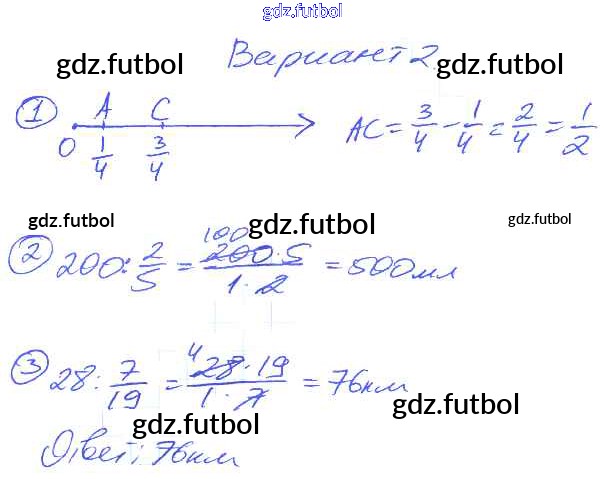 gdz.futbol
Вариант 2
gdz.futbol gdz.futbol
1 A C
0 1/4 3/4 AC = 3/4 - 1/4 = 2/4 = 1/2
gdz.futbol gdz.futbol gdz.futbol
2 200 : 2/5 = 200·5/1·2 = 500 мл
100
3 28 : 7/19 = 28·19/1·7 = 76 км
4
gdz.futbol gdz.futbol
Ответ: 76 км